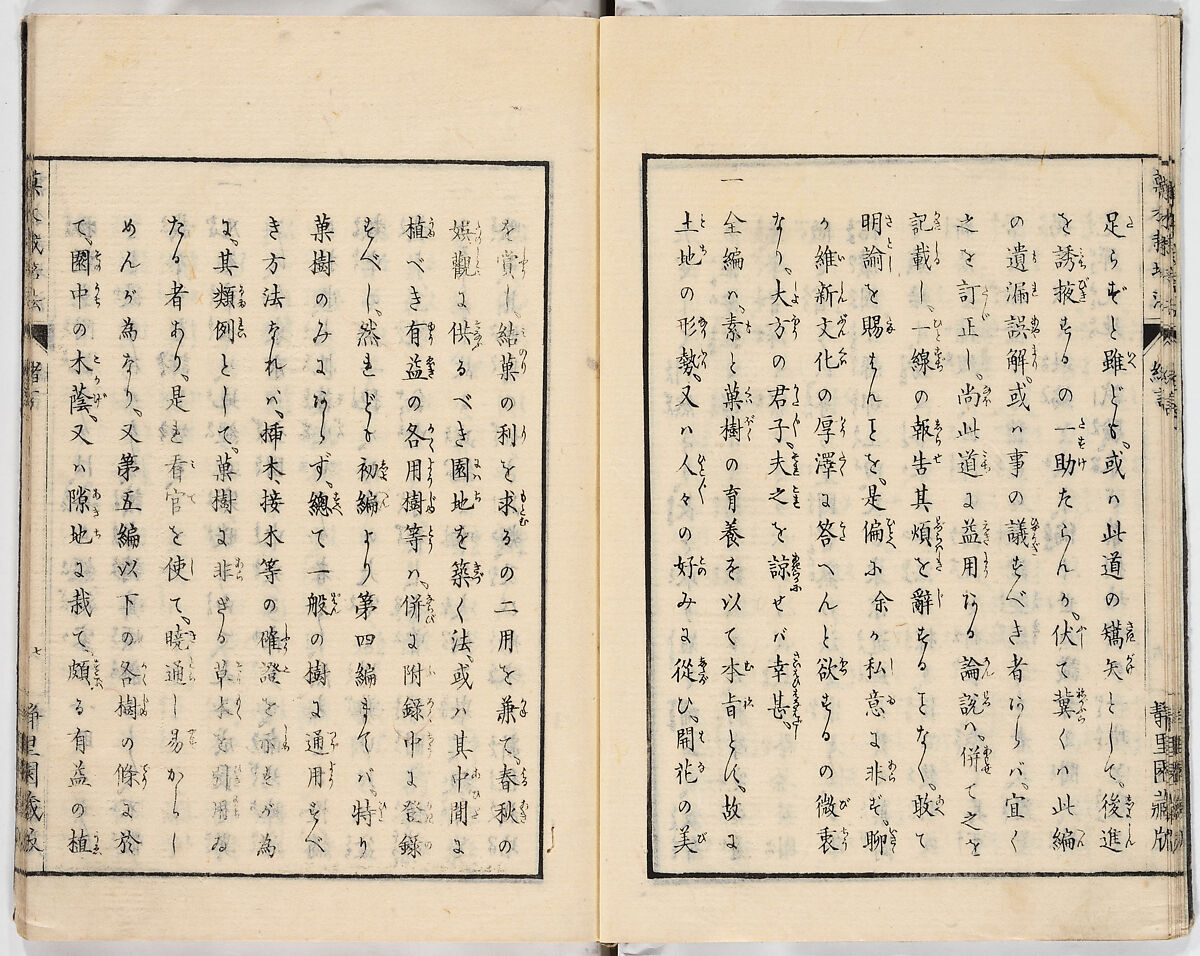 足らずと雖ども、或ハ此道の嚆矢として、後進
を誘掖するの一助たらんか、伏て冀くハ此編
の遺漏誤解、或ハ事の議すべき者あらバ、宜く
之を訂正し、尚此道に益用なる論説ハ、併て之を
記載し、一線の報告其煩を辭することなく、敢て
明諭を賜はんことを、是偏ふ余が私意に非ず、聊
か維新文化の厚澤に答へんと欲するの微衷
なり、大方の君子、夫之を諒せバ幸甚、
一
全編ハ、素と菓樹の育養を以て本旨とす、故に
土地の形勢、又ハ人々の好みに從ひ、開花の美
を賞し、結菓の利を求るの二用を兼て、春秋の
娯觀に供るべき園地を築く法、或ハ其中間に
植べき有益の各用樹等ハ、併に附録中に登録
すべし、然れども初編より第四編までバ、特り
菓樹のみにあらず、總て一般の樹に通用すべ
き方法なれバ、挿木接木等の確證を示すが為
に、其類例として、菓樹に非ざる草木を引用ゐ
たる者あり、是れ看官を使て、曉通し易からし
めんが為なり、又第五編以下の各樹の條に於
て、園中の木蔭、又ハ隙地に栽て、頗る有益の植
緒言
静里園蔵版
七
静里園蔵版